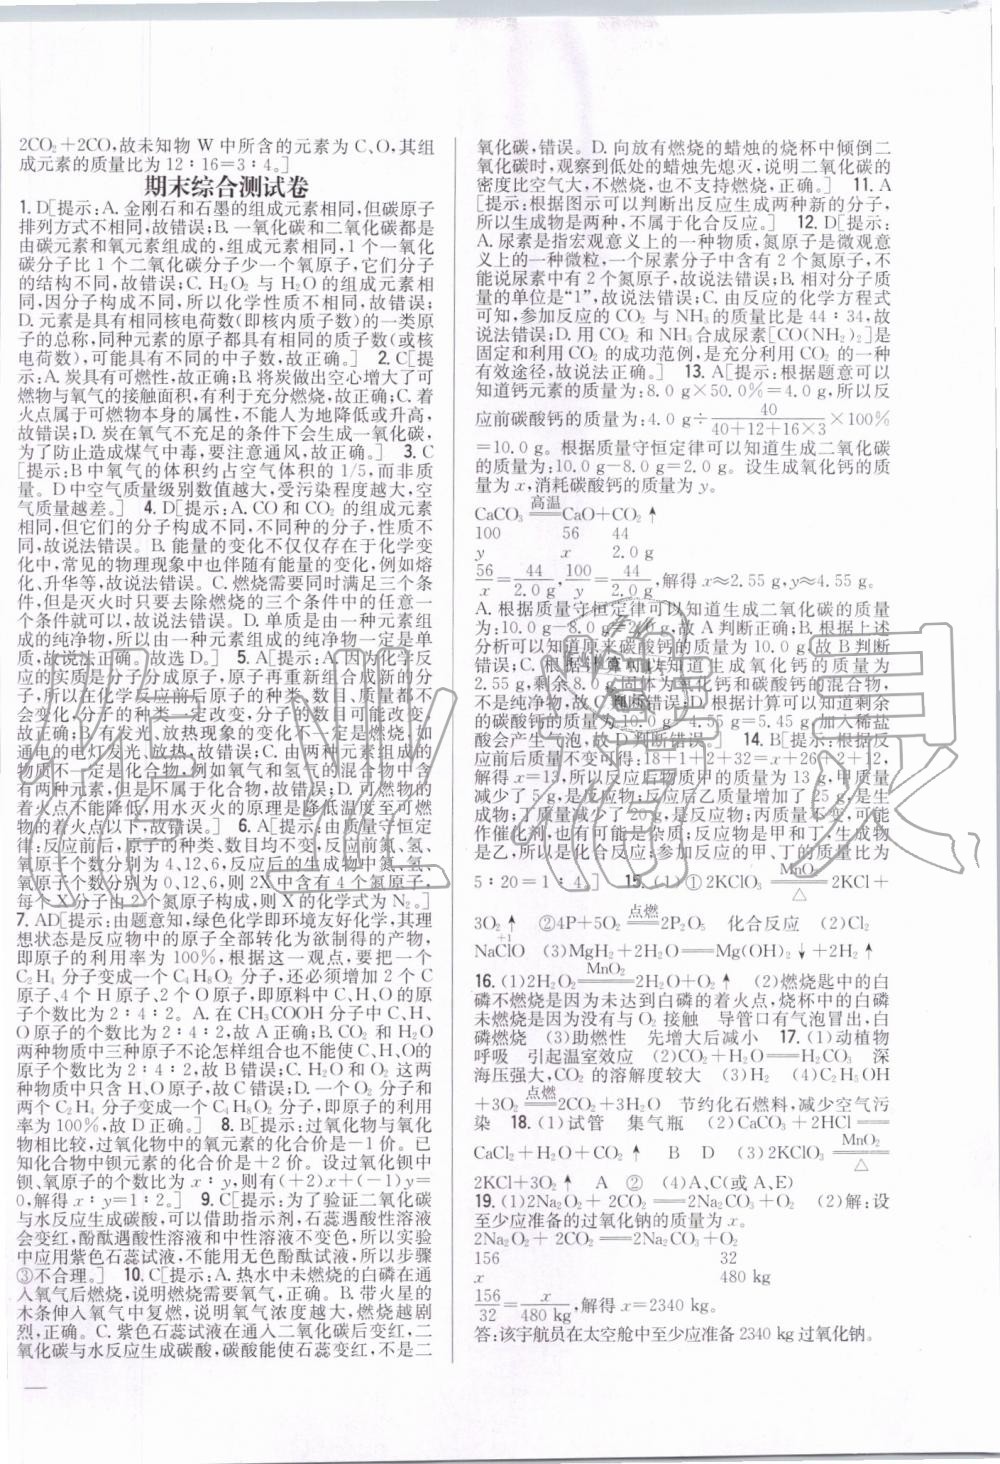 2CO₂+2CO,故未知物 W 中所含的元素为 C、O,其组
成元素的质量比为 12∶16=3∶4。]
期末综合测试卷
1. D[提示:A. 金刚石和石墨的组成元素相同,但碳原子
排列方式不相同,故错误;B. 一氧化碳和二氧化碳都是
由碳元素和氧元素组成的,组成元素相同,1 个一氧化
碳分子比 1 个二氧化碳分子少一个氧原子,它们分子
的结构不同,故错误;C. H₂O₂ 与 H₂O 的组成元素相
同,因分子构成不同,所以化学性质不相同,故错误;
D. 元素是具有相同核电荷数(即核内质子数)的一类原
子的总称,同种元素的原子都具有相同的质子数(或核
电荷数),可能具有不同的中子数,故正确。] 2. C[提
示:A. 炭具有可燃性,故正确;B. 将炭做出空心增大了可
燃物与氧气的接触面积,有利于充分燃烧,故正确;C. 着
火点属于可燃物本身的属性,不能人为地降低或升高,
故错误;D. 炭在氧气不充足的条件下会生成一氧化碳,
为了防止造成煤气中毒,要注意通风,故正确。] 3. C
[提示:B 中氧气的体积约占空气体积的 1/5,而非质
量。D 中空气质量级别数值越大,受污染程度越大,空
气质量越差。] 4. D[提示:A. CO 和 CO₂ 的组成元素
相同,但它们的分子构成不同,不同种的分子,性质不
同,故说法错误。B. 能量的变化不仅仅存在于化学变
化中,常见的物理现象中也伴随有能量的变化,例如熔
化、升华等,故说法错误。C. 燃烧需要同时满足三个条
件,但是灭火时只要去除燃烧的三个条件中的任意一
个条件就可以,故说法错误。D. 单质是由一种元素组
成的纯净物,所以由一种元素组成的纯净物一定是单
质,故说法正确。故选 D。] 5. A[提示:A. 因为化学反
应的实质是分子分成原子,原子再重新组合成新的分
子,所以在化学反应前后原子的种类、数目、质量都不
会变化,分子的种类一定改变,分子的数目可能改变,
故正确;B. 有发光、放热现象的变化不一定是燃烧,如
通电的电灯发光、放热,故错误;C. 由两种元素组成的
物质不一定是化合物,例如氧气和氢气的混合物中含
有两种元素,但是不属于化合物,故错误;D. 可燃物的
着火点不能降低,用水灭火的原理是降低温度至可燃
物的着火点以下,故错误。] 6. A[提示:由质量守恒定
律:反应前后,原子的种类、数目均不变,反应前氮、氢、
氧原子个数分别为 4、12、6,反应后的生成物中氮、氢、
氧原子个数分别为 0、12、6,则 2X 中含有 4 个氮原子,
每个 X 分子由 2 个氮原子构成,则 X 的化学式为 N₂。]
7. AD[提示:由题意知,绿色化学即环境友好化学,其理
想状态是反应物中的原子全部转化为欲制得的产物,
即原子的利用率为 100%,根据这一观点,要把一个
C₂H₄ 分子变成一个 C₄H₈O₂ 分子,还必须增加 2 个 C
原子、4 个 H 原子、2 个 O 原子,即原料中 C、H、O 的原
子个数比为 2∶4∶2。A. 在 CH₃COOH 分子中 C、H、
O 原子的个数比为 2∶4∶2,故 A 正确;B. CO₂ 和 H₂O
两种物质中三种原子不论怎样组合也不可能使 C、H、O的
原子个数比为 2∶4∶2,故 B 错误;C. H₂O 和 O₂ 这两
种物质中只含 H、O 原子,故 C 错误;D. 一个 O₂ 分子和
两个 C₂H₄ 分子变成一个 C₄H₈O₂ 分子,即原子的利用
率为 100%,故 D 正确。] 8. B[提示:过氧化物与氧化
物相比较,过氧化物中的氧元素的化合价是-1 价。已
知化合物中钡元素的化合价是+2 价。设过氧化钡中
钡、氧原子的个数比为 x∶y,则有(+2)x+(-1)y=
0,解得 x∶y=1∶2。] 9. C[提示:为了验证二氧化碳
与水反应生成碳酸,可以借助指示剂,石蕊遇酸性溶液
会变红,酚酞遇酸性溶液和中性溶液不变色,所以实验
中应用紫色石蕊试液,不能用无色酚酞试液,所以步骤
③不合理。] 10. C[提示:A. 热水中未燃烧的白磷在通
入氧气后燃烧,说明燃烧需要氧气,正确。B. 带火星的
木条伸入氧气中复燃,说明氧气浓度越大,燃烧越剧
烈,正确。C. 紫色石蕊试液在通入二氧化碳后变红,二
氧化碳与水反应生成碳酸,碳酸能使石蕊变红,不是二
氧化碳,错误。D. 向放有燃烧的蜡烛的烧杯中倾倒二
氧化碳时,观察到低处的蜡烛先熄灭,说明二氧化碳的
密度比空气大,不燃烧,也不支持燃烧,正确。] 11. A
[提示:根据图示可以判断出反应生成两种新的分子,
所以生成物是两种,不属于化合反应。] 12. D[提示:
A. 尿素是指宏观意义上的一种物质,氮原子是微观意
义上的一种微粒,一个尿素分子中含有 2 个氮原子,不
能说尿素中有 2 个氮原子,故说法错误;B. 相对分子质
量的单位是“1”,故说法错误;C. 由反应的化学方程式
可知,参加反应的 CO₂ 与 NH₃ 的质量比是 44∶34,故
说法错误;D. 用 CO₂ 和 NH₃ 合成尿素[CO(NH₂)₂]是
固定和利用 CO₂ 的成功范例,是充分利用 CO₂ 的一种
有效途径,故说法正确。] 13. A[提示:根据题意可以
知道钙元素的质量为:8.0 g×50.0%=4.0 g,所以反
应前碳酸钙的质量为:4.0 g÷40/(40+12+16×3)×100%
=10.0 g。根据质量守恒定律可以知道生成二氧化碳
的质量为:10.0 g-8.0 g=2.0 g。设生成氧化钙的质
量为 x,消耗碳酸钙的质量为 y。
CaCO₃ =高温= CaO+CO₂↑
100 56 44
y x 2.0 g
56/x=44/2.0 g,100/y=44/2.0 g,解得 x≈2.55 g,y≈4.55 g。
A. 根据质量守恒定律可以知道生成二氧化碳的质量
为:10.0 g-8.0 g=2.0 g,故 A 判断正确;B. 根据上述
分析可以知道原来碳酸钙的质量为 10.0 g,故 B 判断
错误;C. 根据计算可以知道生成氧化钙的质量为
2.55 g,剩余 8.0 g 固体为氧化钙和碳酸钙的混合物,
不是纯净物,故 C 判断错误;D. 根据计算可以知道剩余
的碳酸钙的质量为 10.0 g-4.55 g=5.45 g,加入稀盐
酸会产生气泡,故 D 判断错误。] 14. B[提示:根据反
应前后质量不变可得:18+1+2+32=x+26+2+12,
解得 x=13,所以反应后物质甲的质量为 13 g,甲质量
减少了 5 g,是反应物;反应后乙质量增加了 25 g,是生
成物;丁质量减少了 20 g,是反应物;丙质量不变,可能
作催化剂,也有可能是杂质;反应物是甲和丁,生成物
是乙,所以是化合反应;参加反应的甲、丁的质量比为
5∶20=1∶4。] 15. (1)①2KClO₃ =MnO₂/△= 2KCl+
3O₂↑ ②4P+5O₂ =点燃= 2P₂O₅ 化合反应 (2)Cl₂
NaC(+1)lO (3)MgH₂+2H₂O══Mg(OH)₂↓+2H₂↑
16. (1)2H₂O₂ =MnO₂= 2H₂O+O₂↑ (2)燃烧匙中的白
磷不燃烧是因为未达到白磷的着火点,烧杯中的白磷
未燃烧是因为没有与 O₂ 接触 导管口有气泡冒出,白
磷燃烧 (3)助燃性 先增大后减小 17. (1)动植物
呼吸 引起温室效应 (2)CO₂+H₂O══H₂CO₃ 深
海压强大,CO₂ 的溶解度较大 (3)H₂ (4)C₂H₅OH
+3O₂ =点燃= 2CO₂+3H₂O 节约化石燃料,减少空气污
染 18. (1)试管 集气瓶 (2)CaCO₃+2HCl══
CaCl₂+H₂O+CO₂↑ B D (3)2KClO₃ =MnO₂/△=
2KCl+3O₂↑ A ② (4)A、C(或 A、E)
19. (1)2Na₂O₂+2CO₂══2Na₂CO₃+O₂ (2)解:设
至少应准备的过氧化钠的质量为 x。
2Na₂O₂+2CO₂══2Na₂CO₃+O₂
156 32
x 480 kg
156/32=x/480 kg,解得 x=2340 kg。
答:该宇航员在太空舱中至少应准备 2340 kg 过氧化钠。